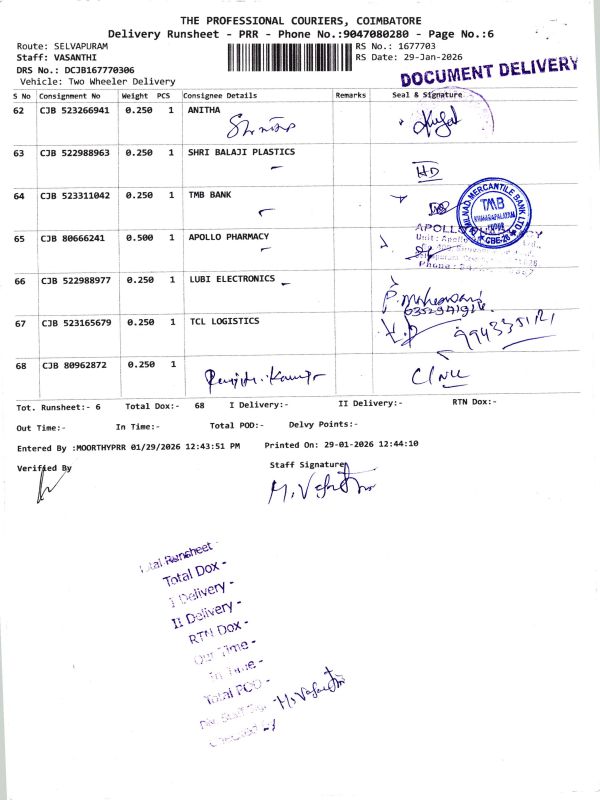 THE PROFESSIONAL COURIERS, COIMBATORE
Delivery Runsheet - PRR - Phone No.:9047080280 - Page No.:6
Route: SELVAPURAM
RS No.: 1677703
Staff: VASANTHI
RS Date: 29-Jan-2026
DRS No.: DCJB167770306
Vehicle: Two Wheeler Delivery
DOCUMENT DELIVERY
S No Consignment No Weight PCS Consignee Details Remarks Seal & Signature
62 CJB 523266941 0.250 1 ANITHA
63 CJB 522988963 0.250 1 SHRI BALAJI PLASTICS
HD
64 CJB 523311042 0.250 1 TMB BANK
TAMILNAD MERCANTILE BANK LTD.
TMB
CBE-26
65 CJB 80666241 0.500 1 APOLLO PHARMACY
APOLLO
66 CJB 522988977 0.250 1 LUBI ELECTRONICS
P. Maheswari
67 CJB 523165679 0.250 1 TCL LOGISTICS
68 CJB 80962872 0.250 1
Tot. Runsheet:- 6 Total Dox:- 68 I Delivery:- II Delivery:- RTN Dox:-
Out Time:- In Time:- Total POD:- Delvy Points:-
Entered By :MOORTHYPRR 01/29/2026 12:43:51 PM Printed On: 29-01-2026 12:44:10
Verified By
Staff Signature
Total Runsheet -
Total Dox -
I Delivery -
II Delivery -
RTN Dox -
Out Time -
In Time -
Total POD -